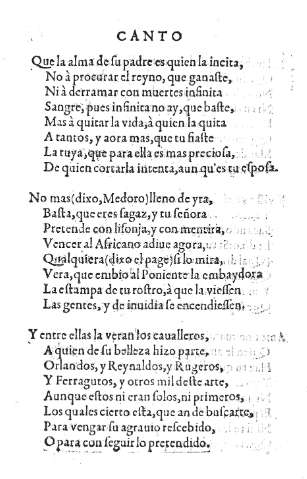 CANTO
Que la alma de su padre es quien la incita,
No à procurar el reyno, que ganaste,
Ni à derramar con muertes infinita
Sangre, pues infinita no ay, que baste,
Mas à quitar la vida, à quien la quita
A tantos, y aora mas, que tu fiaste
La tuya, que para ella es mas preciosa,
De quien cortarla intenta, aunqu'es tu esposa.
No mas (dixo, Medoro) lleno de yra,
Basta, que eres sagaz, y tu señora
Pretende con lisonja, y con mentira,
Vencer al Africano adiue agora,
Qualquiera (dixo el page) si lo mira,
Vera, que embio al Poniente la embaydora
La estampa de tu rostro, à que la viessen
Las gentes, y de inuidia se encendiessen.
Y entre ellas la veran los caualleros,
A quien de su belleza hizo parte,
Orlandos, y Reynaldos, y Rugeros,
Y Ferragutos, y otros mil deste arte,
Aunque estos ni eran solos, ni primeros,
Los quales cierto esta, que an de buscarte,
Para vengar su agrauio rescebido,
O para conseguir lo pretendido.